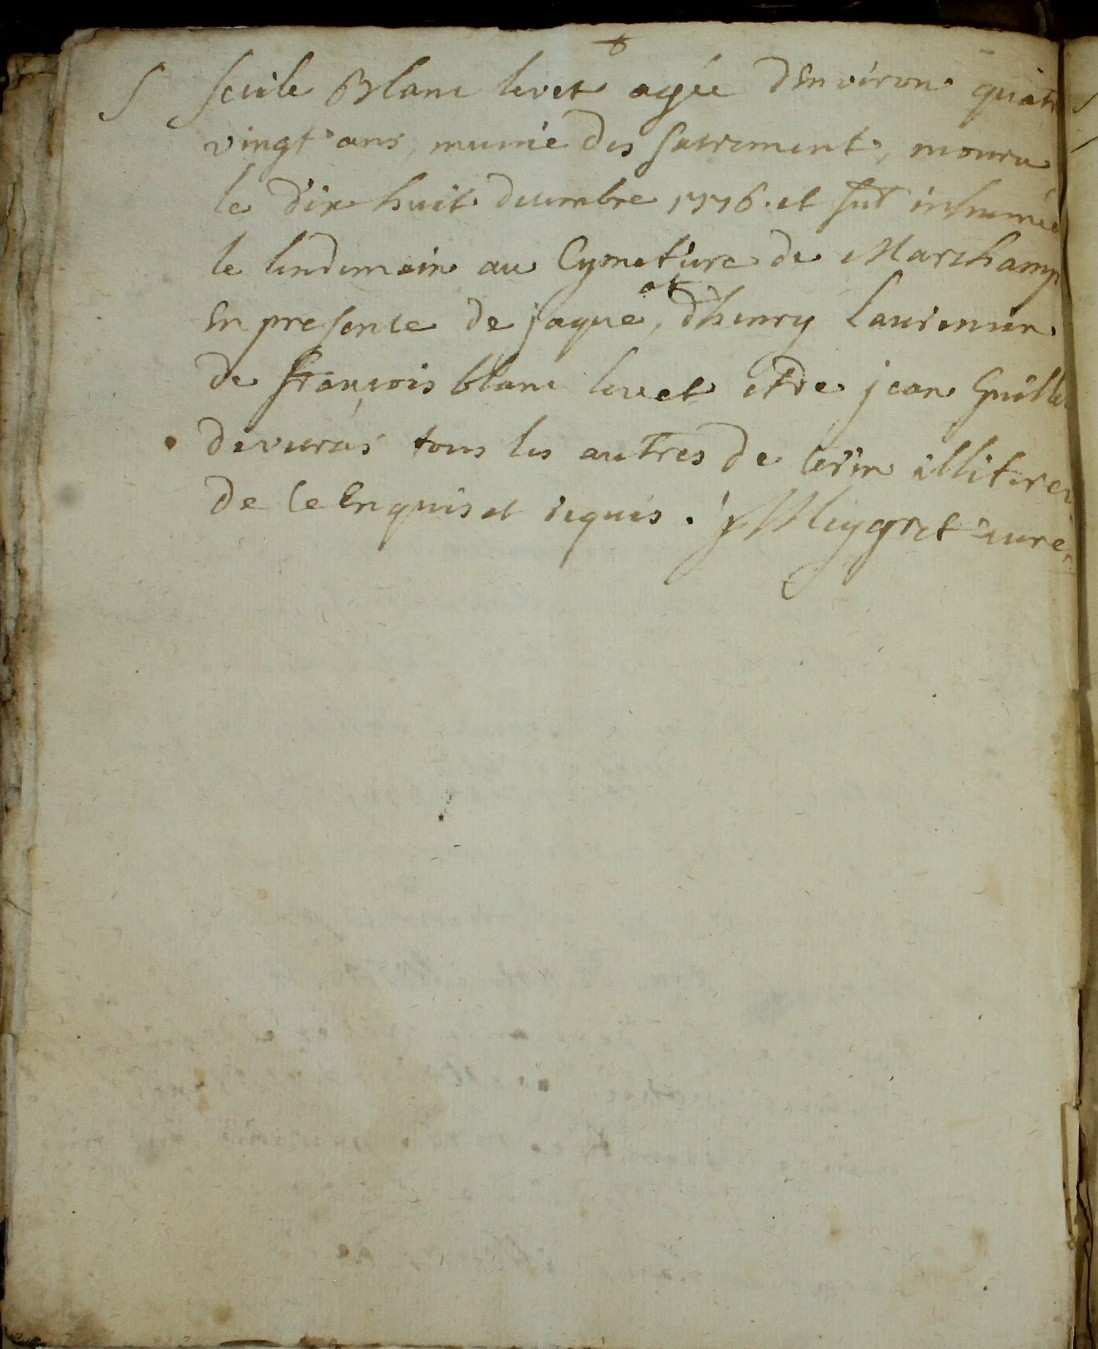 S Scicile Blanc levet agée d'Environ quatr
vingt ans, munie des Sacrement, mouru
le dix huit decembre 1776. et fut inhumée
le lendemain au Cymetiere de Marchamp
En presence de jaque, et d'henry Laurencin
de françois blanc levet et de jean Guill
tous les autres de cerin illiteres
de ce Enquis et requis. Meygret curé